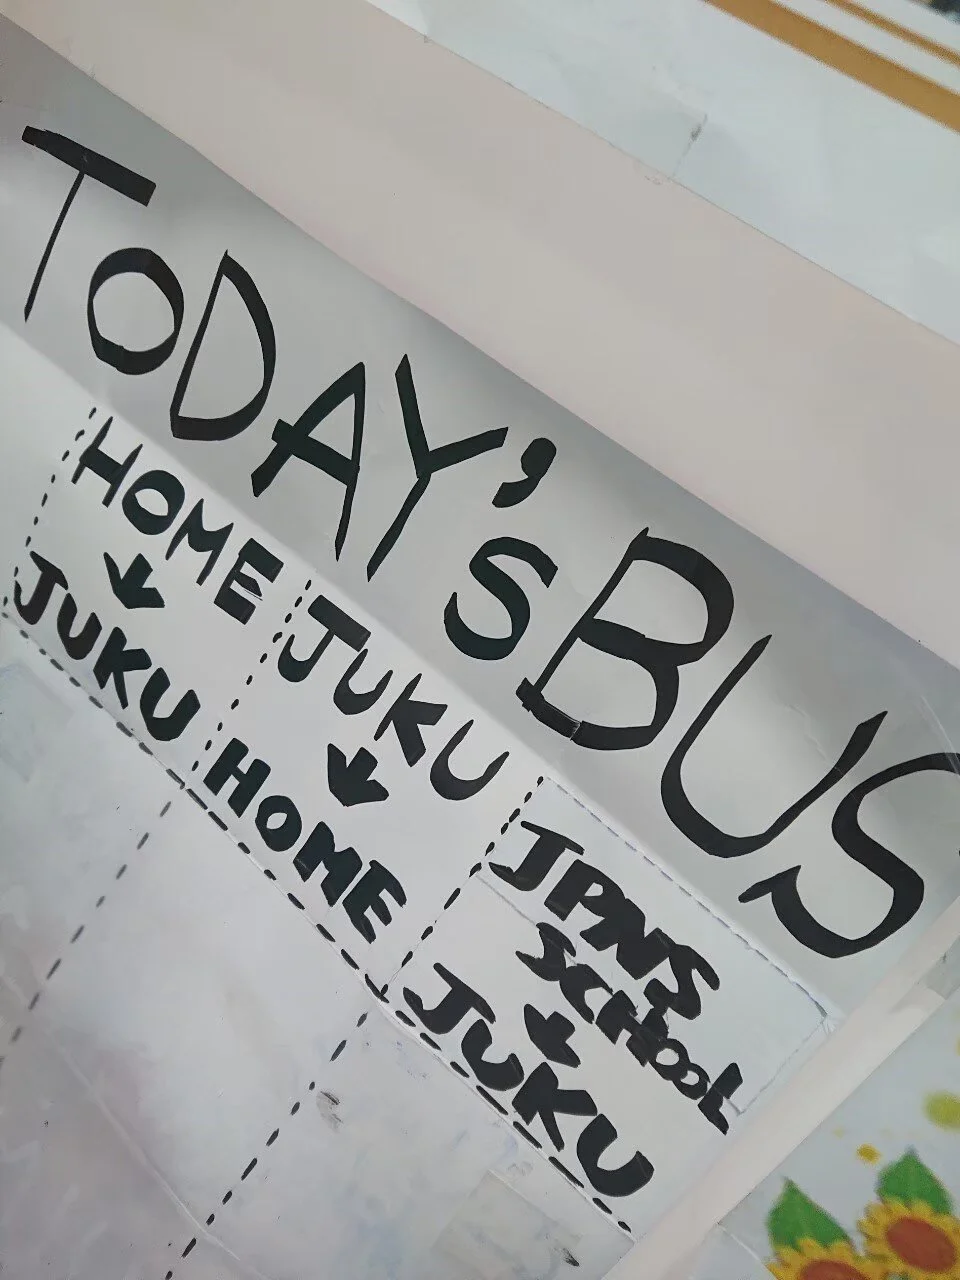 TODAY'S BUS
HOME
↓
JUKU
JUKU
↓
HOME
JPNS
SCHOOL
↓
JUKU